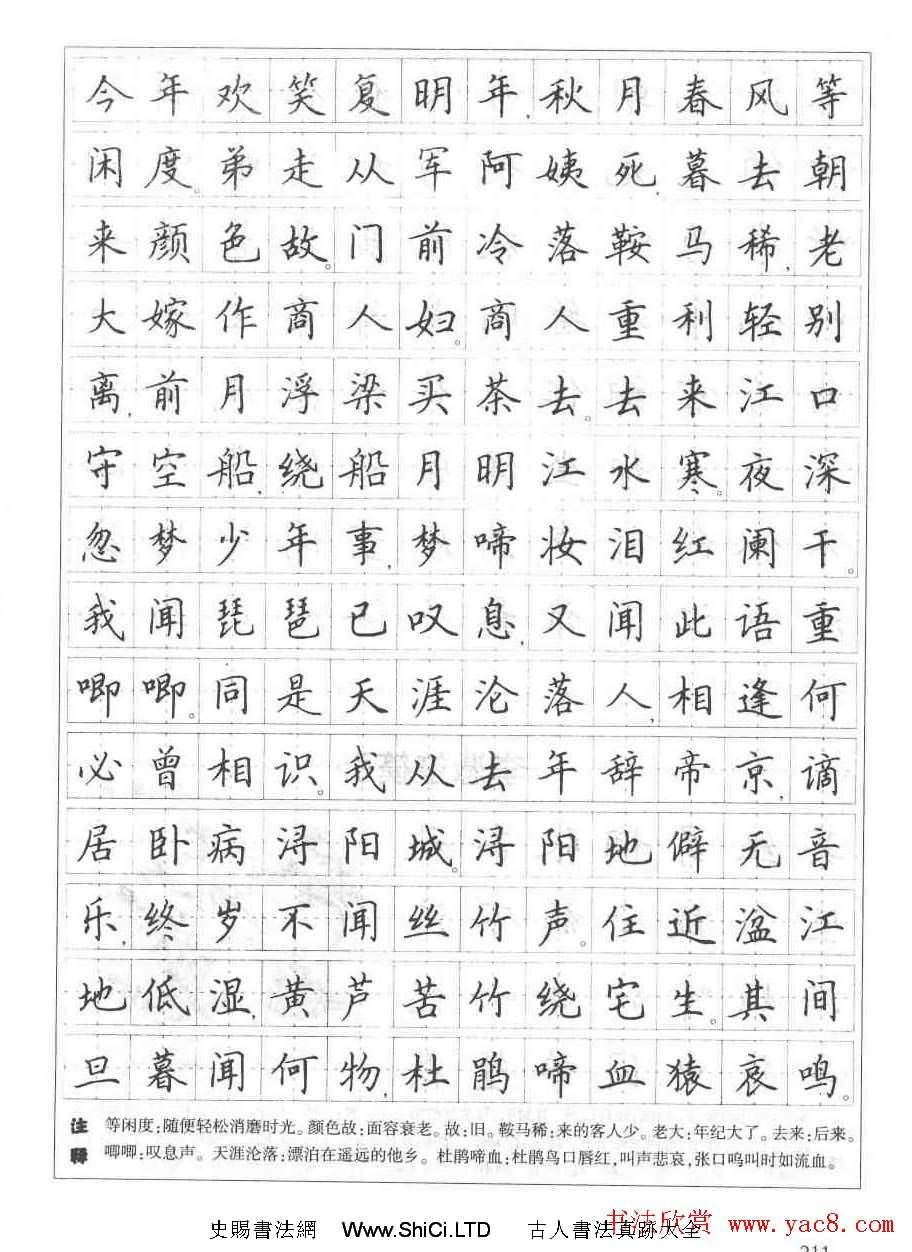 今年欢笑复明年,秋月春风等
闲度。弟走从军阿姨死,暮去朝
来颜色故。门前冷落鞍马稀,老
大嫁作商人妇。商人重利轻别
离,前月浮梁买茶去。去来江口
守空船,绕船月明江水寒。夜深
忽梦少年事,梦啼妆泪红阑干。
我闻琵琶已叹息,又闻此语重
唧唧。同是天涯沦落人,相逢何
必曾相识。我从去年辞帝京,谪
居卧病浔阳城。浔阳地僻无音
乐,终岁不闻丝竹声。住近湓江
地低湿,黄芦苦竹绕宅生。其间
旦暮闻何物,杜鹃啼血猿哀鸣。
注释 等闲度:随便轻松消磨时光。颜色故:面容衰老。故:旧。鞍马稀:来的客人少。老大:年纪大了。去来:后来。
唧唧:叹息声。天涯沦落:漂泊在遥远的他乡。杜鹃啼血:杜鹃鸟口唇红,叫声悲哀,张口鸣叫时如流血。
书法欣赏 www.yac8.com
史賜書法網 Www.ShiCi.LTD 古人書法真跡大全
211